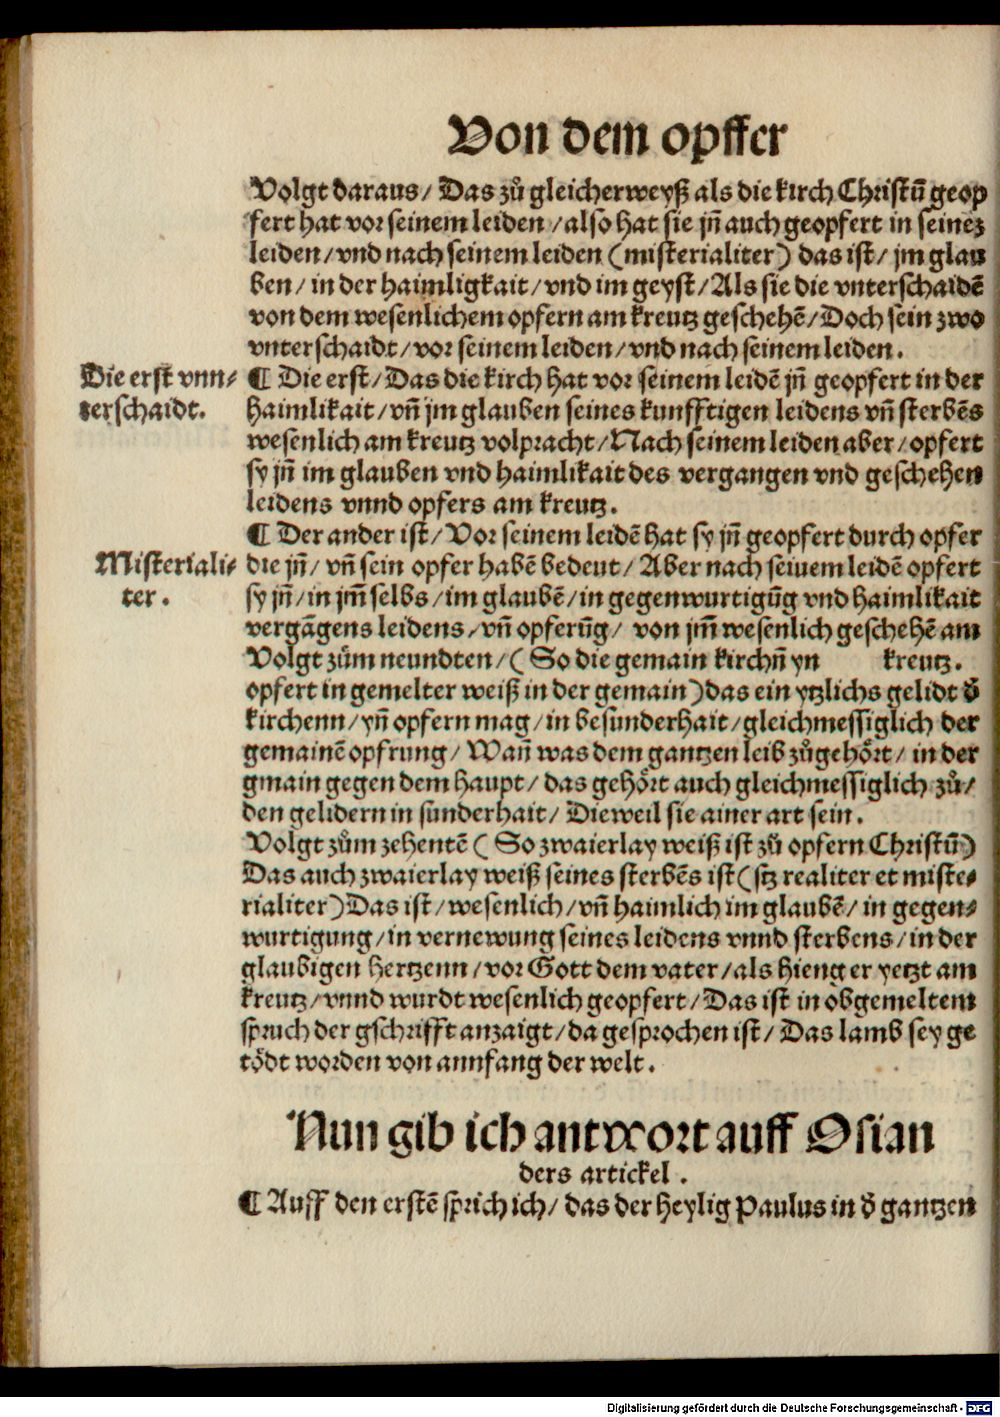 Von dem opffer
Volgt daraus/ Das zů gleicherweyß als die kirch Christū geop
fert hat vor seinem leiden /also hat sie jn̄ auch geopfert in seinez
leiden/vnd nach seinem leiden (misterialiter) das ist/ jm glau
ben/ in der haimligkait/vnd im geyst/Als sie die vnterschaidē
von dem wesenlichem opfern am kreutz geschehē/Doch sein zwo
vnterschaidt/vor seinem leiden/vnd nach seinem leiden.
Die erst vnn⸗
terschaidt.
¶ Die erst/Das die kirch hat vor seinem leidē jn̄ geopfert in der
haimlikait/vn̄ jm glauben seines kunfftigen leidens vn̄ sterbēs
wesenlich am kreutz volpracht/Nach seinem leiden aber/opfert
sy jn̄ im glauben vnd haimlikait des vergangen vnd geschehen
leidens vnnd opfers am kreutz.
¶ Der ander ist/ Vor seinem leidē hat sy jn̄ geopfert durch opfer
Misteriali⸗
ter.
die jn̄/ vn̄ sein opfer habē bedeut/ Aber nach seiuem leidē opfert
sy jn̄/in jm̄ selbs/im glaubē/in gegenwurtigūg vnd haimlikait
vergāgens leidens/vn̄ opferūg/ von jm̄ wesenlich geschehē am
Volgt zům neundten/(So die gemain kirchn̄ yn kreutz.
opfert in gemelter weiß in der gemain)das ein ytzlichs gelidt d̄
kirchenn/yn̄ opfern mag/in besunderhait/gleichmessiglich der
gemainē opfrung/ Wan̄ was dem gantzen leib zůgehört/ in der
gmain gegen dem haupt/das gehört auch gleichmessiglich zů/
den gelidern in sunderhait/ Dieweil sie ainer art sein.
Volgt zům zehentē (So zwaierlay weiß ist zů opfern Christū)
Das auch zwaierlay weiß seines sterbēs ist(sz realiter et miste⸗
rialiter)Das ist/wesenlich/vn̄ haimlich im glaubē/in gegen⸗
wurtigung/in vernewung seines leidens vnnd sterbens/in der
glaubigen hertzenn/vor Gott dem vater/als hieng er yetzt am
kreutz/vnnd wurdt wesenlich geopfert/Das ist in obgemeltem
spruch der gschrifft anzaigt/da gesprochen ist/ Das lamb sey ge
tödt worden von annfang der welt.
Nun gib ich antwort auff Osian
ders artickel.
¶ Auff den erstē sprich ich/ das der heylig Paulus in d̄ gantzen
Digitalisierung gefördert durch die Deutsche Forschungsgemeinschaft - DFG